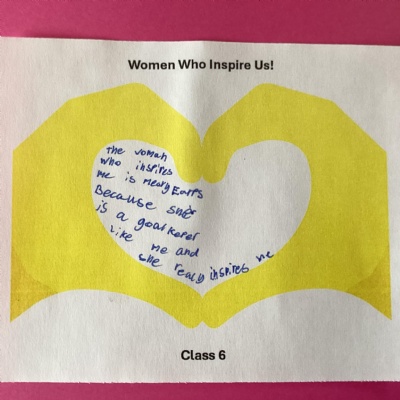 Women Who Inspire Us!
the woman
who inspires
me is meary Earps
Because she
is a goal keper
like me and
she realy inspires me
Class 6